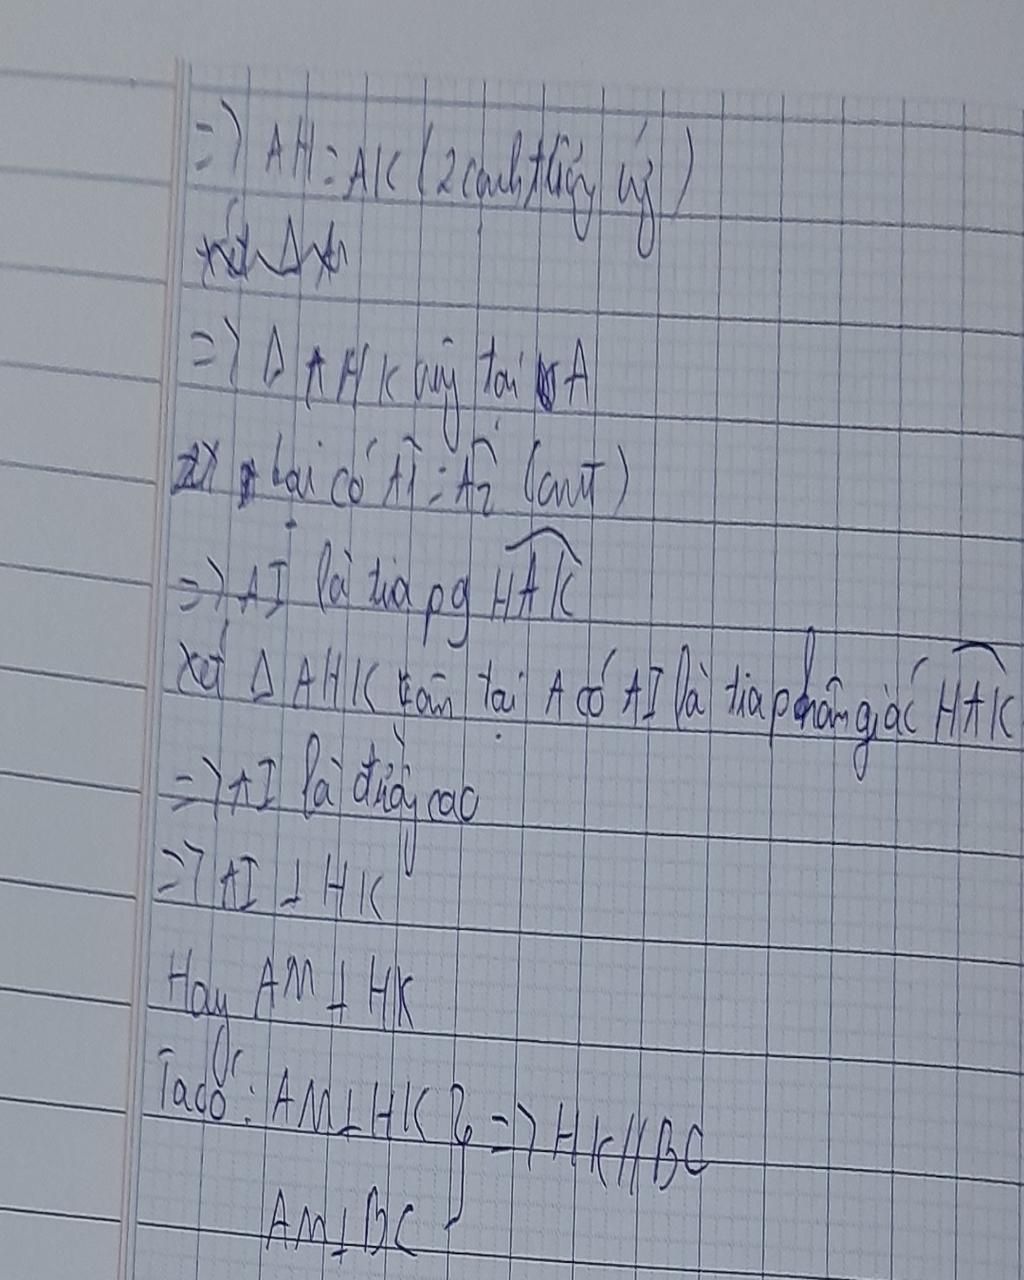 => AH = AK (2 cạnh tương ứng)
=> Δ AHK cân tại A
lại có Â1 = Â2 (cmt)
=> AI là tia pg HAK
Xét Δ AHK cân tại A có AI là tia phân giác HAK
=> AI là đường cao
=> AI ⊥ HK
Hay AM ⊥ HK
Ta có: AM ⊥ HK } => HK // BC
AM ⊥ BC